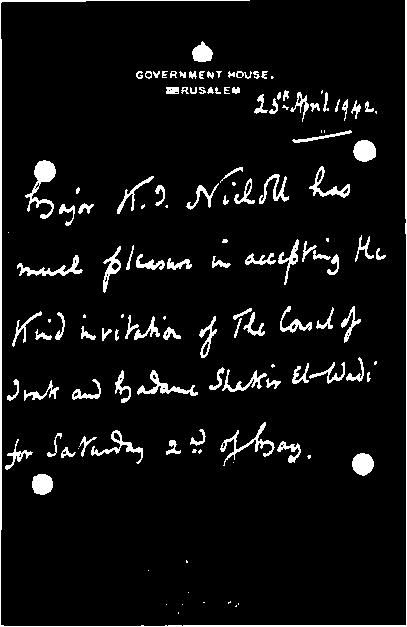 GOVERNMENT HOUSE,
JERUSALEM
25th April 1942.
Major K.I. Nicholl has
much pleasure in accepting the
Kind invitation of The Consul of
Irak and Madame Shakir El-Wadi
for Saturday 2nd of May.